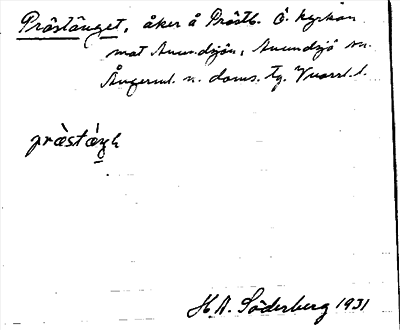 Prästänget, åker å Prästb. Ö. kyrkan
mot Anundsjön, Anundsjö sn.
Ångerml. n. doms. tg. Vnorrl. l.
prästäŋk
H.A. Söderberg 1931